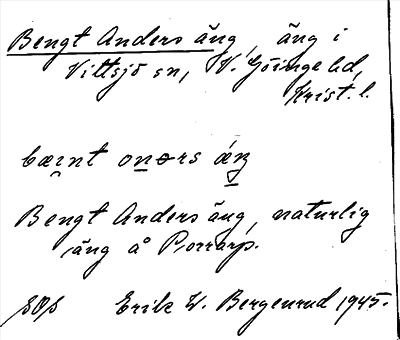 Bengt Anders äng, äng i
Vittsjö sn, V. Göinge hd,
Krist. l.
bæi̯nt onərs
Bengt Anders äng, naturlig
äng å Porrarp.
Erik W. Bergenrud 1945.